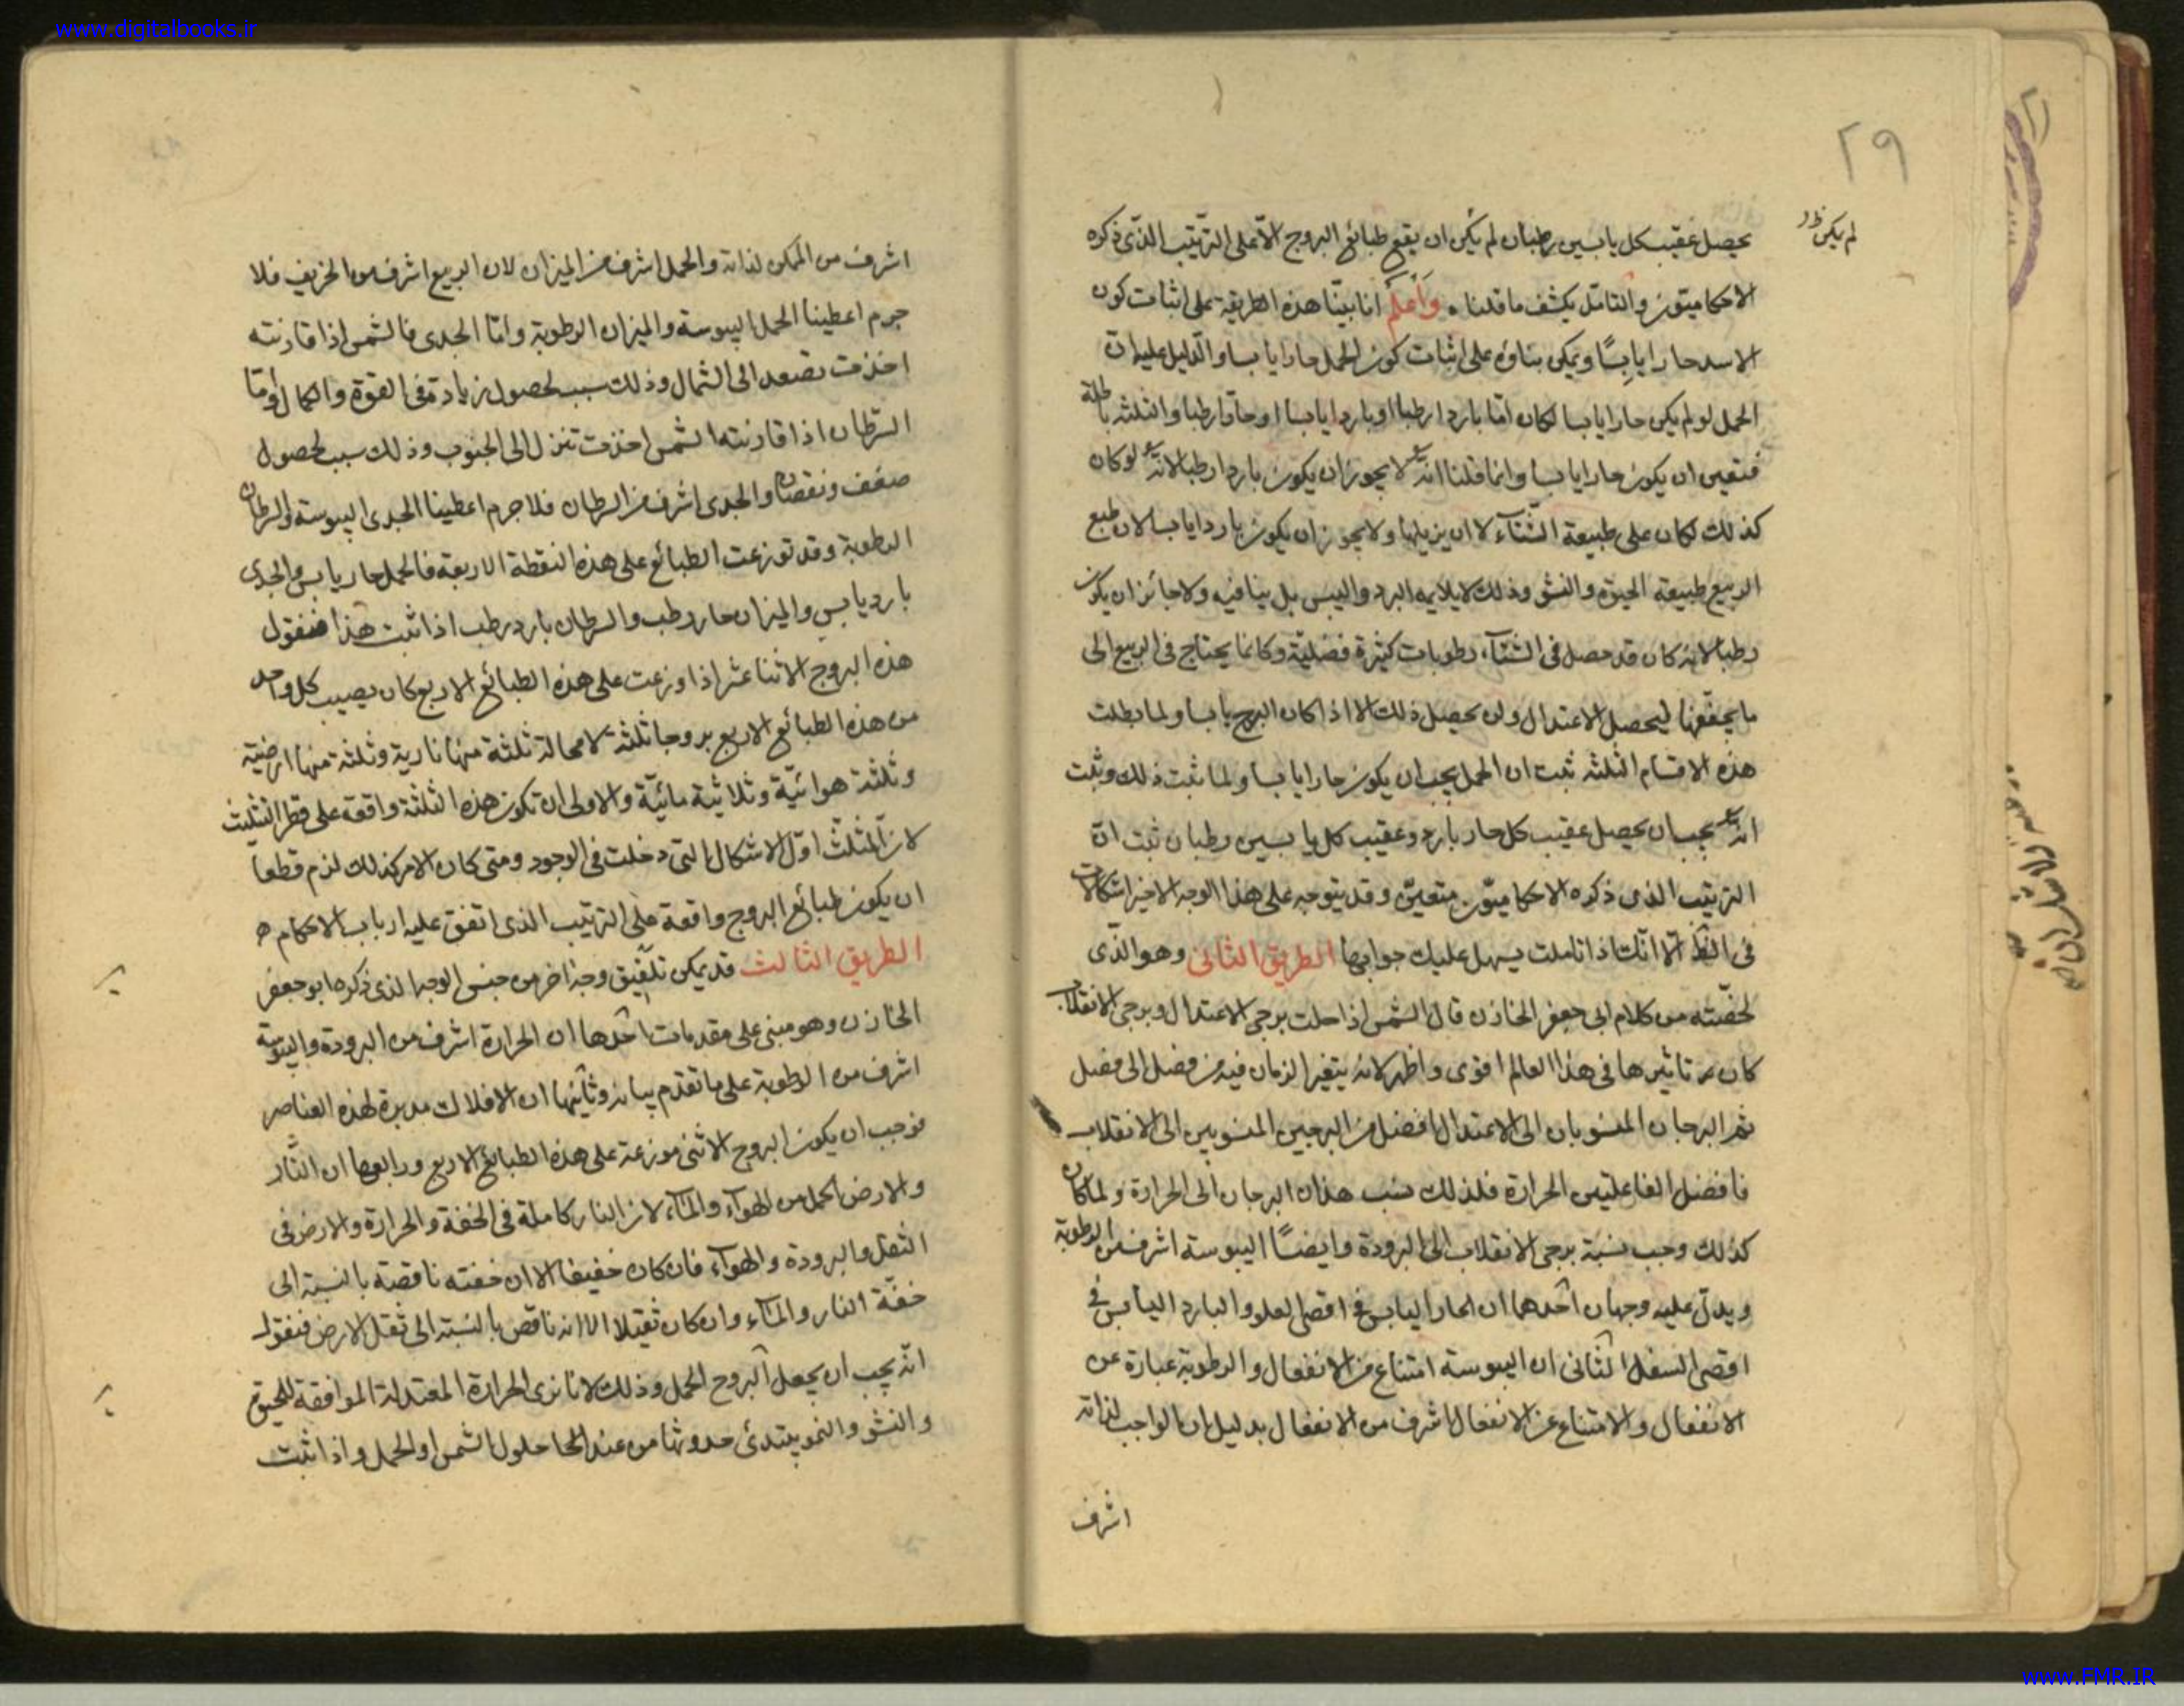 www.digitalbooks.ir
٢٩
لم يكن
يحصل عقيب كل يابسين رطبان لم يكن ان يقع طبائع البروج الا على الترتيب الذى ذكره
الاحكاميون والتامّل يكشف ما قلنا . وَاعلَم انا بيّنا هذه الطريقة على اثبات كون
الاسد حارا يابسًا ويمكن بناؤه على اثبات كون الحمل حارا يابسا والدليل عليه انّ
الحمل لو لم يكن حارا يابسا لكان امّا باردا رطبا او باردا يابسا او حارا رطبا والثلثه باطلة
فتعين ان يكون حارا يابسا وانما قلنا انه لا يجوز ان يكون باردا رطبا لانه لو كان
كذلك لكان على طبيعة الشتاء لا ان يزيلها ولا يجوز ان يكون باردا يابسا لان طبع
الربيع طبيعة الحيوة والنشو وذلك لا يلايمه البرد واليبس بل ينافيه ولا جائز ان يكون
رطبا لانه كان قد حصل فى الشتاء رطوبات كثيرة فضليّة وكانما يحتاج فى الربيع الى
ما يجففها ليحصل الاعتدال ولن يحصل ذلك الا اذا كان البرج يابسا ولما بطلت
هذه الاقسام الثلثه ثبت ان الحمل يجب ان يكون حارا يابسا ولما ثبت ذلك وثبت
انه يجب ان يحصل عقيب كل حار بارد وعقيب كل يابسين رطبان ثبت انّ
الترتيب الذى ذكره الاحكاميّون متعيّن وقد يتوجه على هذا الوجه الاخير اشكالات
فى الظ الا انّك اذا تاملت يسهل عليك جوابها الطريق الثانى وهو الذّى
لخصّته من كلام ابى جعفر الخازن قال الشمس اذا حلت برجى الاعتدال وبرجى الانقلاب
كان تاثيرها فى هذا العالم اقوى واظهر لانه يتغير الزمان فيه من فصل الى فصل
ثم البرجان المنسوبان الى الاعتدال افضل من البرجين المنسوبين الى الانقلاب
فافضل الفاعليتين الحرارة فلذلك نسب هذان البرجان الى الحرارة ولما كان
كذلك وجب نسبة برجى الانقلاب الى البرودة وايضًا اليبوسة اشرف من الرطوبة
ويدل عليه وجهان احدهما ان الحار اليابس فى اقصى العلو والبارد اليابس فى
اقصى السفل الثانى ان اليبوسة امتناع من الانفعال والرطوبة عبارة عن
الانفعال والامتناع عن الانفعال اشرف من الانفعال بدليل ان الواجب لذاته
اشرف
اشرف من الممكن لذاته والحمل اشرف من الميزان لان الربيع اشرف من الخريف فلا
جرم اعطينا الحمل اليبوسة والميزان الرطوبة وامّا الجدى فالشمس اذا قارنته
اخذت تصعد الى الشمال وذلك سبب لحصول زيادة فى القوة والكمال وامّا
السرطان اذا قارنته الشمس اخذت تنزل الى الجنوب وذلك سبب لحصول
ضعف ونقصان والجدى اشرف من السرطان فلا جرم اعطينا الجدى اليبوسة والسرطان
الرطوبة وقد توزعت الطبائع على هذه النقطة الاربعة فالحمل حار يابس والجدى
بارد يابس والميزان حار رطب والسرطان بارد رطب اذا ثبت هذا فنقول
هذه البروج الاثنا عشر اذا وزعت على هذه الطبائع الاربع كان يصيب كل واحد
من هذه الطبائع الاربع بروجا ثلثة لا محالة ثلثة منها نارية وثلثة منها ارضيّة
وثلثة هوائيّة وثلاثية مائيّة والاولى ان تكون هذه الثلثة واقعة على قطر التثليث
لان المثلّث اوّل الاشكال التى دخلت فى الوجود ومتى كان الامر كذلك لزم قطعاً
ان يكون طبائع البروج واقعة على الترتيب الذى اتفق عليه ارباب الاحكام ه
الطريق الثالث قد يمكن تلفيق وجه اخر من جنس الوجه الذى ذكره ابو جعفر
الخازن وهو مبنى على مقدمات احدها ان الحرارة اشرف من البرودة واليبوسة
اشرف من الرطوبة على ما تقدم بيانه وثانيها ان الافلاك مدبرة لهذه العناصر
فوجب ان يكون البروج الاثنى موزعة على هذه الطبائع الاربع ورابعها ان النّار
والارض اكمل من الهواء والماء لان النار كاملة فى الخفة والحرارة والارض فى
الثقل والبرودة والهواء فان كان خفيفا الا ان خفته ناقصة بالنسبة الى
خفّة النار والماء وان كان ثقيلا الا انه ناقص بالنسبة الى ثقل الارض فنقول
انّه يجب ان يجعل البروج الحمل وذلك لانا نرى الحرارة المعتدلة الموافقة للحيوة
والنشو والنمو يبتدئ حدوثها من عند حلول الشمس اول الحمل واذا ثبت
www.FMR.IR